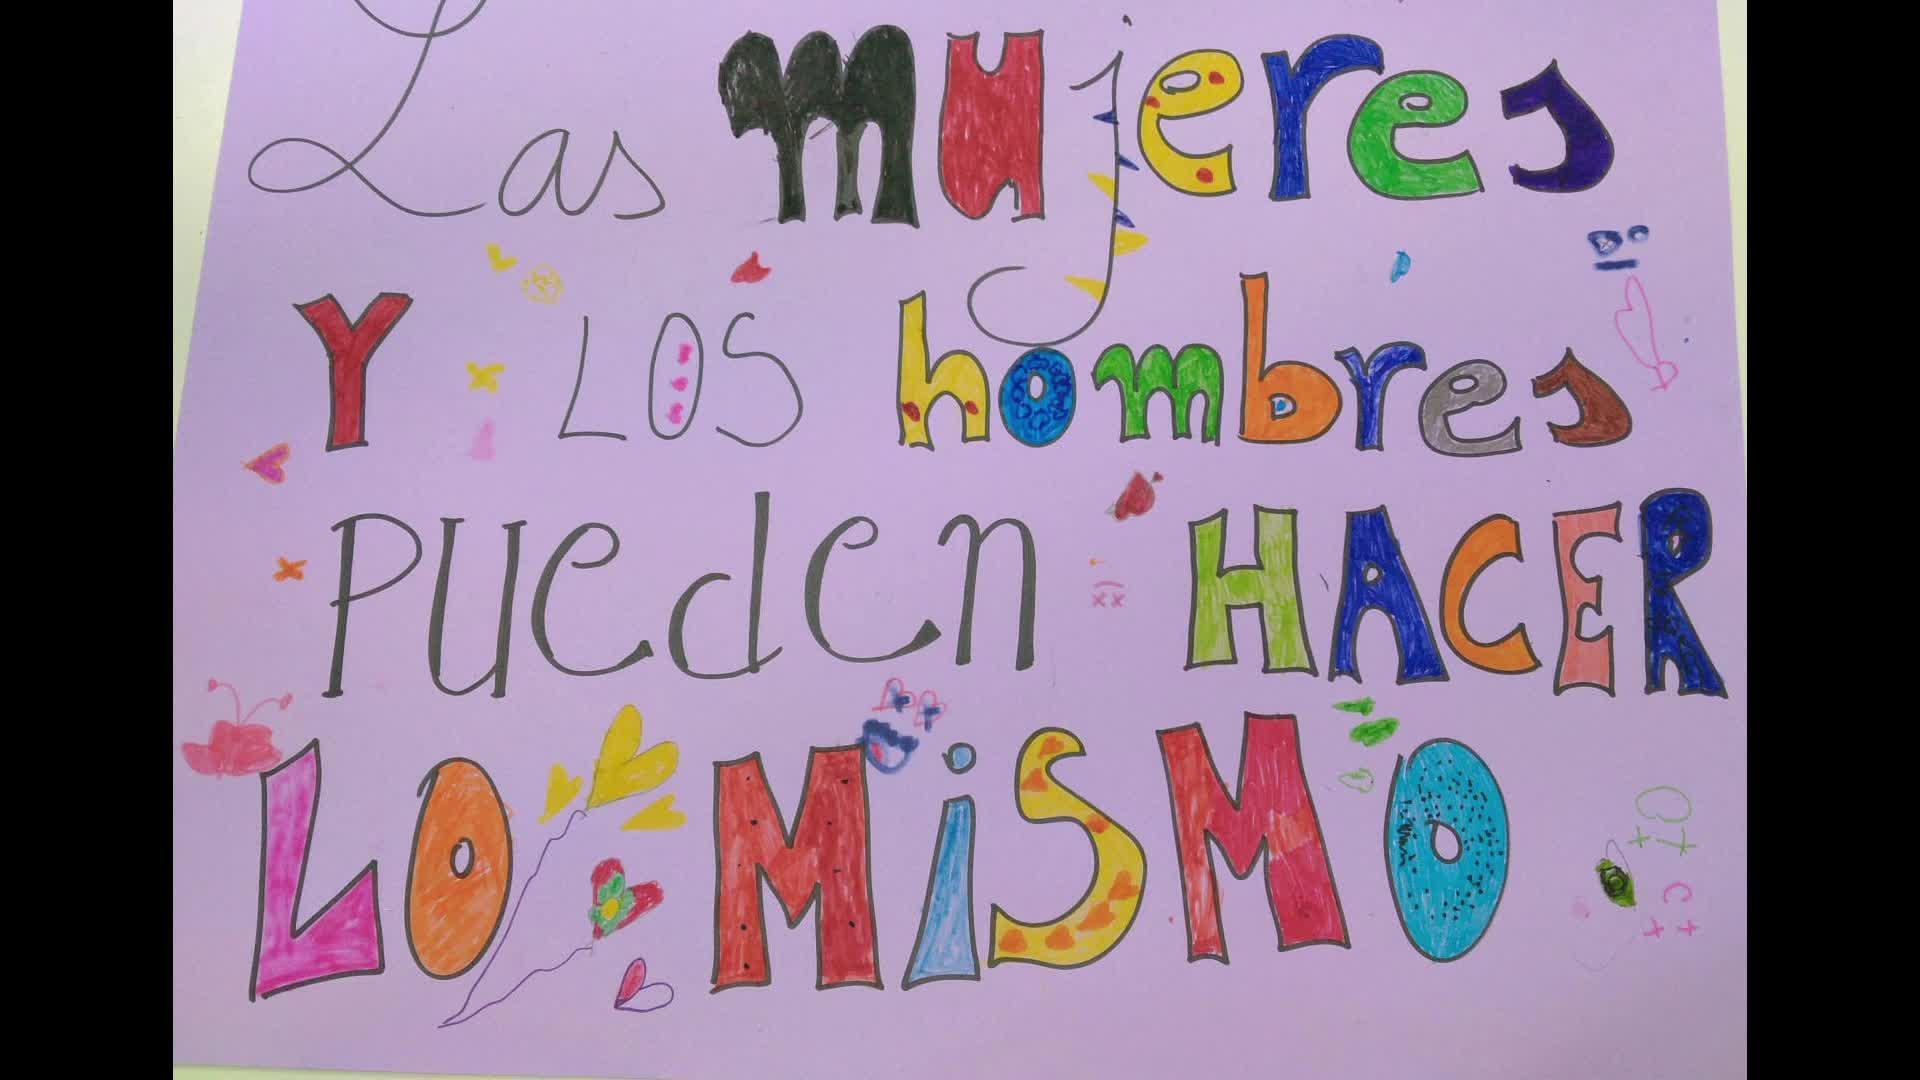 Las mujeres
Y LOS hombres
PUEDEN HACER
LO MiSMO